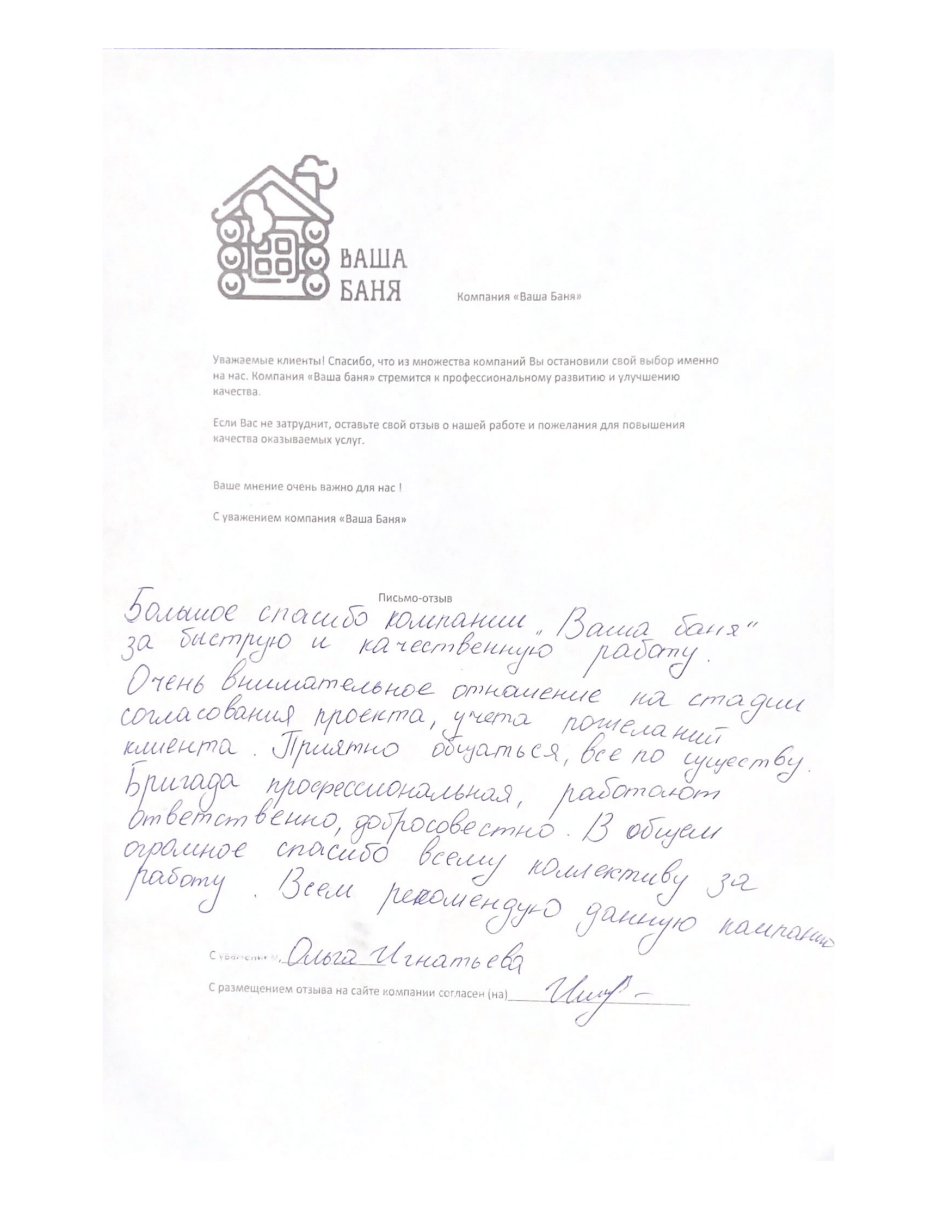 ВАША
БАНЯ
Компания «Ваша Баня»
Уважаемые клиенты! Спасибо, что из множества компаний Вы остановили свой выбор именно
на нас. Компания «Ваша баня» стремится к профессиональному развитию и улучшению
качества.
Если Вас не затруднит, оставьте свой отзыв о нашей работе и пожелания для повышения
качества оказываемых услуг.
Ваше мнение очень важно для нас !
С уважением компания «Ваша Баня»
Письмо-отзыв
Большое спасибо компании „Ваша баня“
за быструю и качественную работу.
Очень внимательное отношение на стадии
согласования проекта, учета пожеланий
клиента. Приятно общаться, все по существу.
Бригада профессиональная, работают
ответственно, добросовестно. В общем
огромное спасибо всему коллективу за
работу. Всем рекомендую данную кампанию
С уважением, Ольга Игнатьева
С размещением отзыва на сайте компании согласен (на)